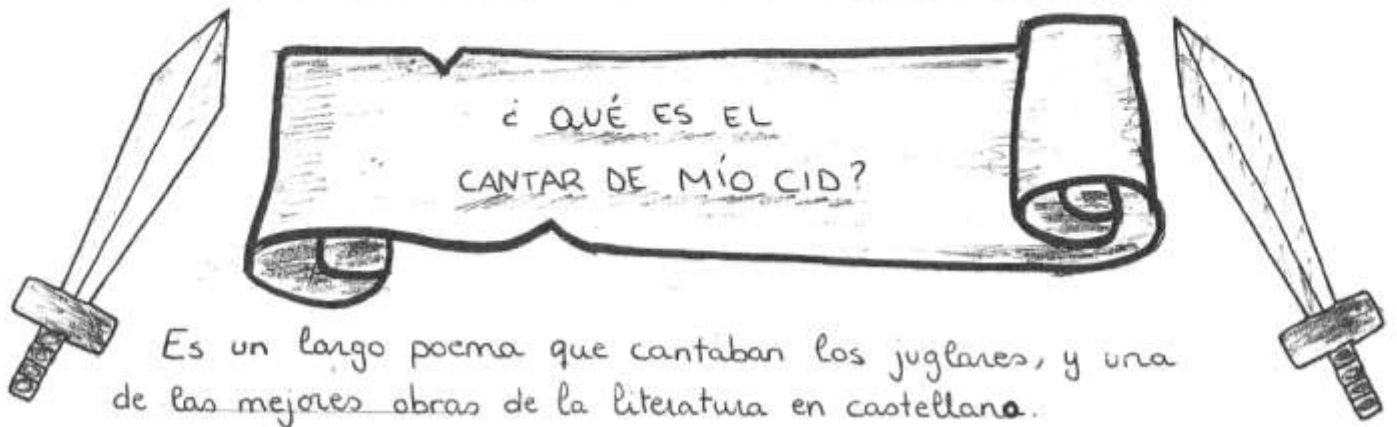 ¿ QUÉ ES EL
CANTAR DE MÍO CID?
Es un largo poema que cantaban los juglares, y una
de las mejores obras de la literatura en castellano.